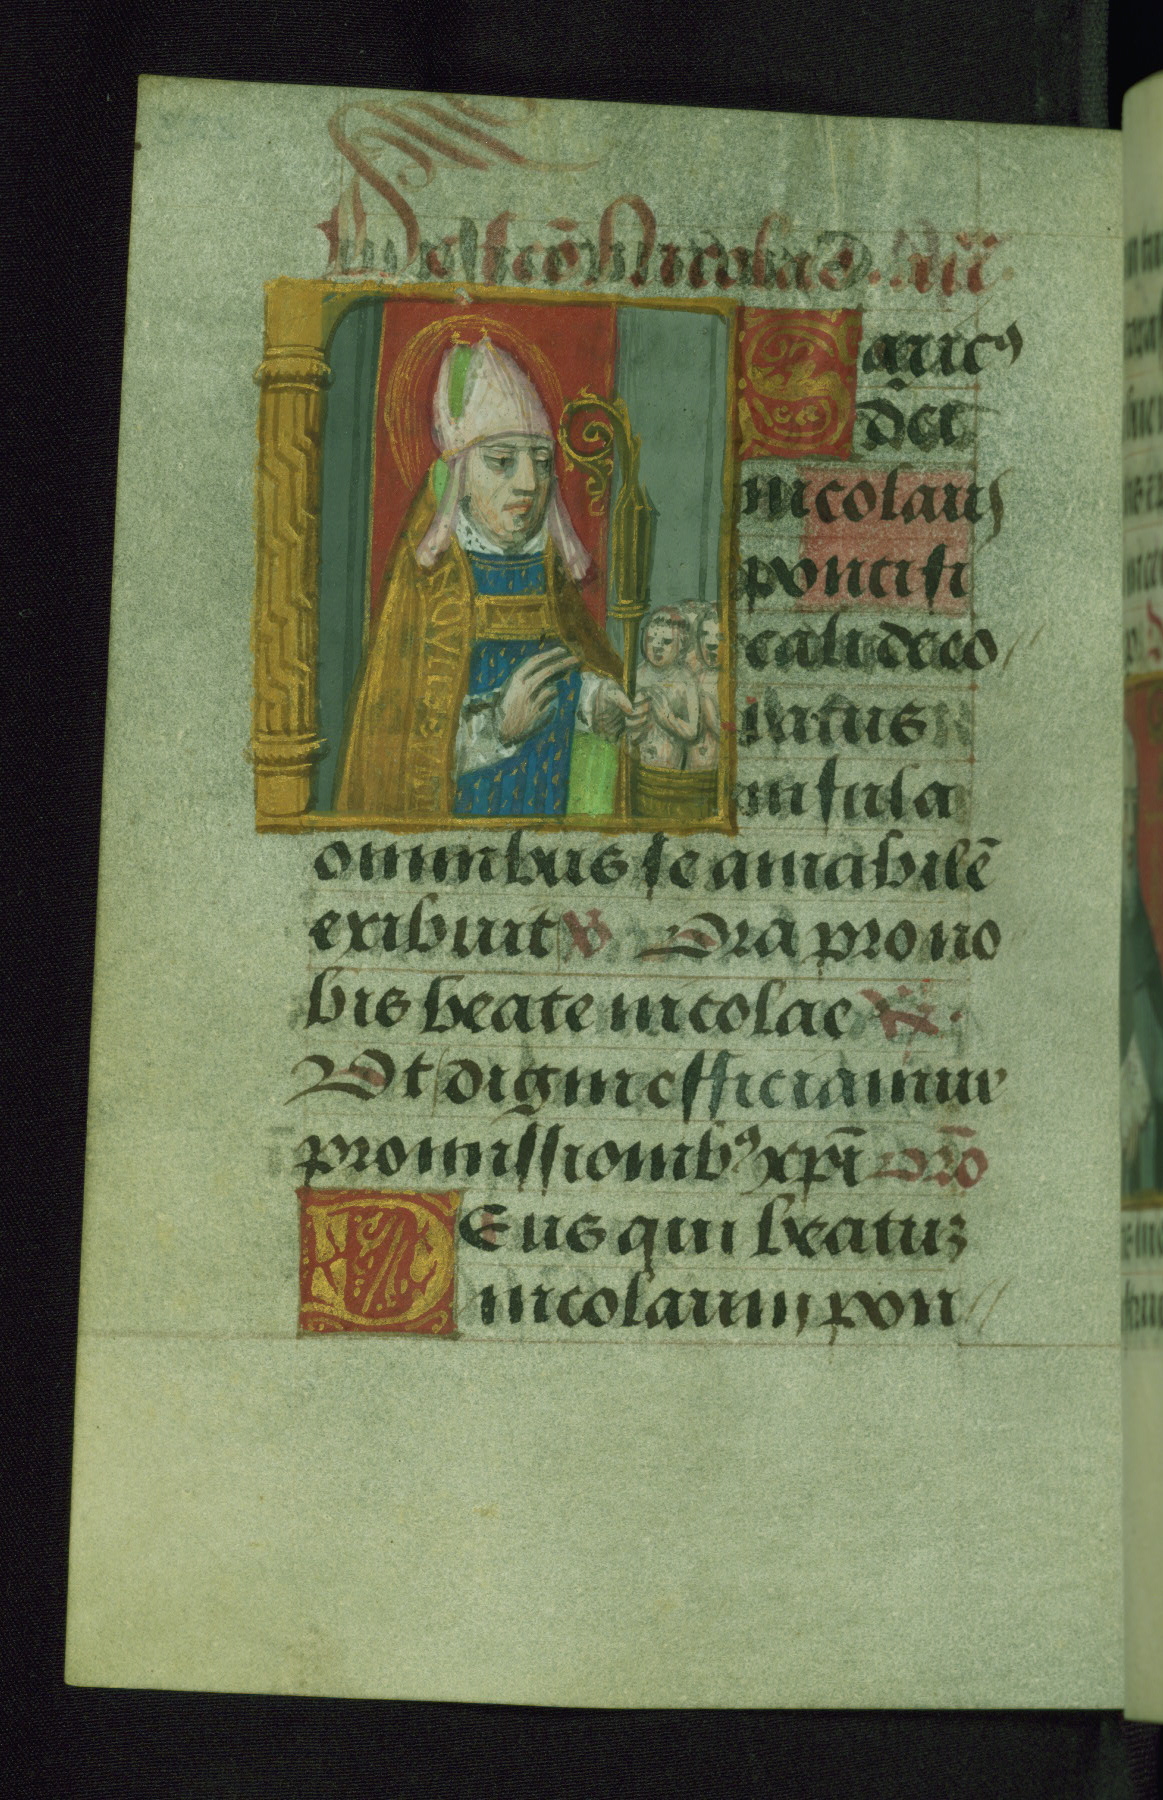 De scō Nicolao. Añ
Amicꝰ
dei
nicolaus
pontifi
cali deco
ratus
infula
omnibus se amabilē
exibuit ℣ Ora pro no
bis beate nicolae ℟.
Ut digni efficiamur
promissionibꝰ xpī orō
Deus qui beatuz
nicolaum pon